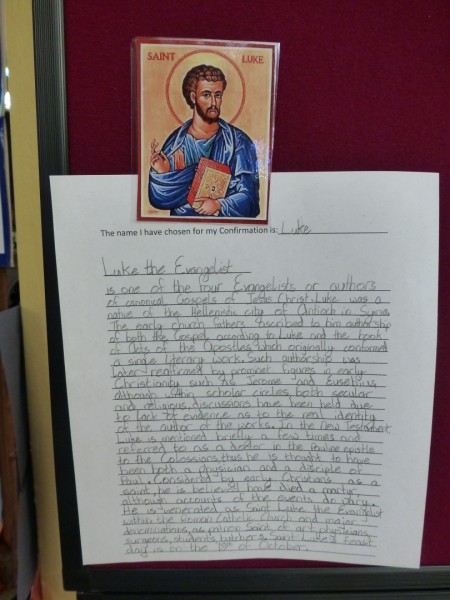 SAINT LUKE
The name I have chosen for my Confirmation is: Luke
Luke the Evangelist
is one of the four Evangelists or authors
of canonical Gospels of Jesus Christ. Luke was a
native of the Hellenistic city of Antioch in Syria.
The early church fathers ascribed to him authorship
of both the Gospel according to Luke and the book
of Acts of the Apostles, which originally contained
a single literary work. Such authorship was
later reaffirmed by prominent figures in early
Christianity such as Jerome and Eusebius,
although within scholar circles, both secular
and religious, discussions have been held due
to lack of evidence as to the real identity
of the author of the works. In the New Testament
Luke is mentioned briefly a few times and
referred to as a doctor in the Pauline epistle
to the Colossians, thus he is thought to have
been both a physician and a disciple of
Paul. Considered by early Christians as a
saint, he is believed to have died a martyr,
although accounts of the events do vary.
He is venerated as Saint Luke the Evangelist
within the Roman Catholic Church and major
denominations, as patron Saint of artists, physicians,
surgeons, students, butchers. Saint Luke's feast
day is on the of October.